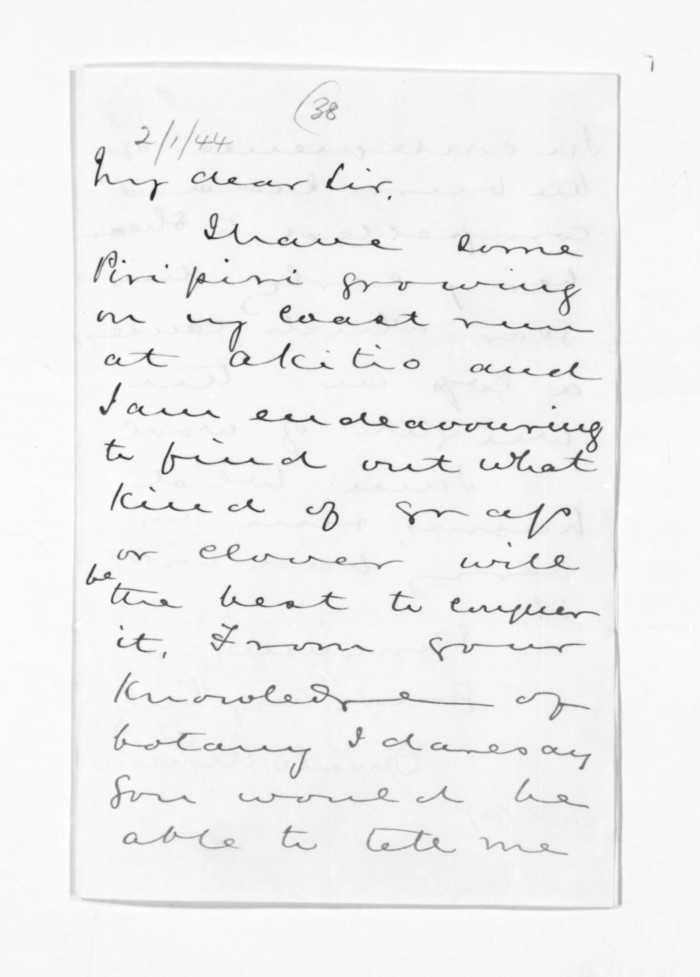 (38
2/1/44
My dear Sir.
I have some
Piripiri growing
on my coast run
at Akitio and
I am endeavouring
to find out what
kind of grass
or clover will
be
the best to conquer
it. From your
knowledge of
botany I daresay
you would be
able to tell me